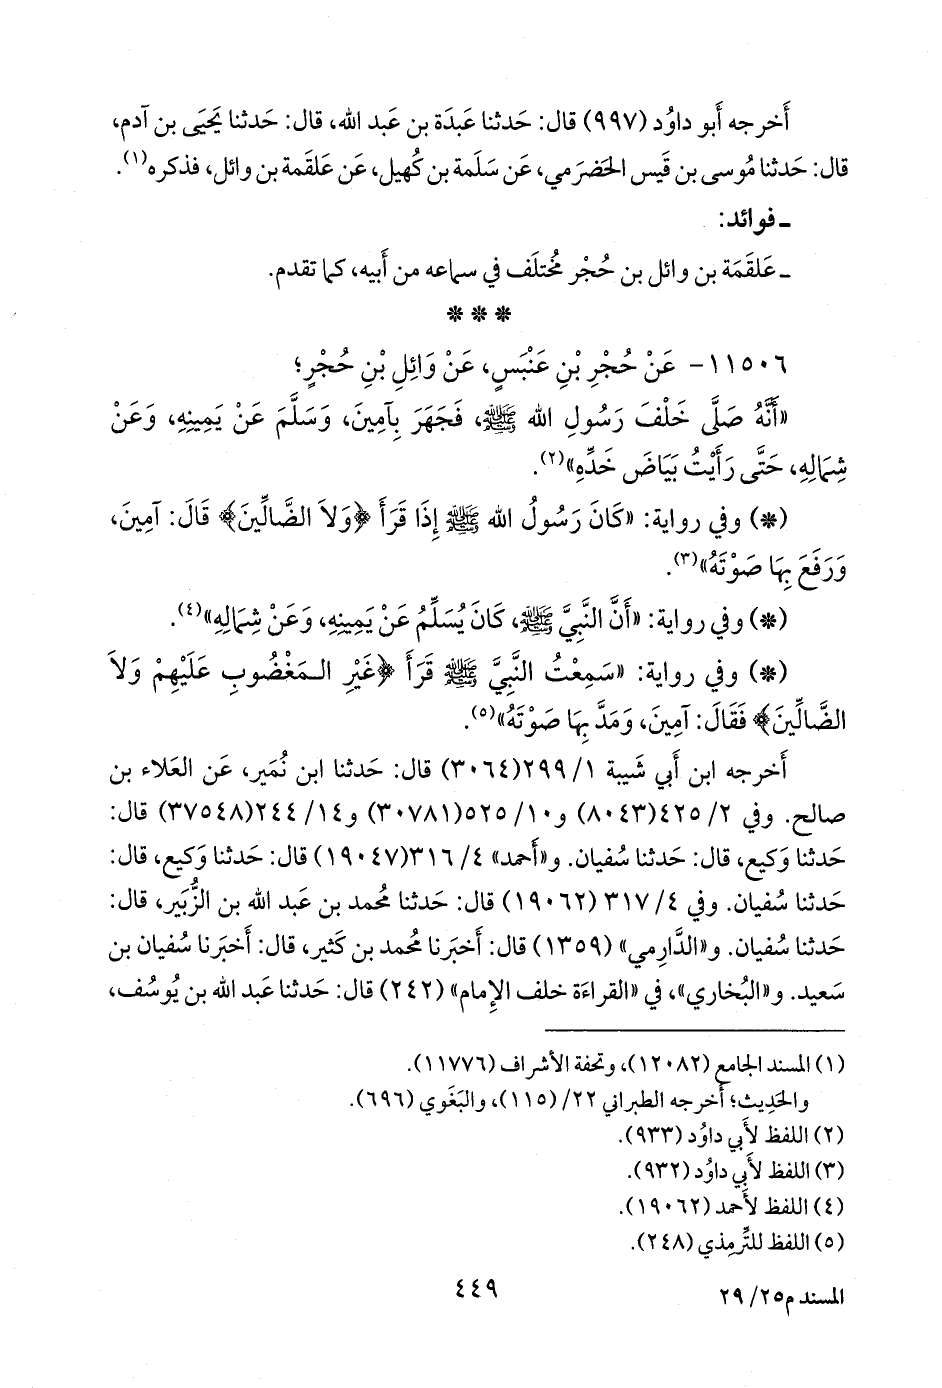 أَخرجه أَبو داوُد (٩٩٧) قال: حَدثنا عَبدَة بن عَبد الله، قال: حَدثنا يَحيَى بن آدم،
قال: حَدثنا مُوسى بن قَيس الحَضرَمي، عَن سَلَمة بن كُهيل، عَن عَلقمة بن وائل، فذكره(١).
ـ فوائد:
ـ عَلقَمَة بن وائل بن حُجْر مُختلَف في سماعه من أَبيه، كما تقدم.
* * *
١١٥٠٦- عَنْ حُجْرِ بْنِ عَنْبَسٍ، عَنْ وَائِلِ بْنِ حُجْرٍ؛
«أَنَّهُ صَلَّى خَلْفَ رَسُولِ الله ﷺ، فَجَهَرَ بِآمِينَ، وَسَلَّمَ عَنْ يَمِينِهِ، وَعَنْ
شِمَالِهِ، حَتَّى رَأَيْتُ بَيَاضَ خَدِّهِ»(٢).
(*) وفي رواية: «كَانَ رَسُولُ الله ﷺ إِذَا قَرَأَ ﴿وَلاَ الضَّالِّينَ﴾ قَالَ: آمِينَ،
وَرَفَعَ بِهَا صَوْتَهُ»(٣).
(*) وفي رواية: «أَنَّ النَّبِيَّ ﷺ، كَانَ يُسَلِّمُ عَنْ يَمِينِهِ، وَعَنْ شِمَالِهِ»(٤).
(*) وفي رواية: «سَمِعْتُ النَّبِيَّ ﷺ قَرَأَ ﴿غَيْرِ الـمَغْضُوبِ عَلَيْهِمْ وَلاَ
الضَّالِّينَ﴾ فَقَالَ: آمِينَ، وَمَدَّ بِهَا صَوْتَهُ»(٥).
أَخرجه ابن أَبي شَيبة ١/ ٢٩٩(٣٠٦٤) قال: حَدثنا ابن نُمَير، عَن العَلاء بن
صالح. وفي ٢/ ٤٢٥(٨٠٤٣) و١٠/ ٥٢٥(٣٠٧٨١) و١٤/ ٢٤٤(٣٧٥٤٨) قال:
حَدثنا وَكيع، قال: حَدثنا سُفيان. و«أَحمد» ٤/ ٣١٦(١٩٠٤٧) قال: حَدثنا وَكيع، قال:
حَدثنا سُفيان. وفي ٤/ ٣١٧ (١٩٠٦٢) قال: حَدثنا مُحمد بن عَبد الله بن الزُّبَير، قال:
حَدثنا سُفيان. و«الدَّارِمي» (١٣٥٩) قال: أَخبَرنا مُحمد بن كَثير، قال: أَخبَرنا سُفيان بن
سَعيد. و«البُخاري»، في «القراءَة خلف الإِمام» (٢٤٢) قال: حَدثنا عَبد الله بن يُوسُف،
(١) المسند الجامع (١٢٠٨٢)، وتحفة الأشراف (١١٧٧٦).
والحَدِيث؛ أَخرجه الطبراني ٢٢/ (١١٥)، والبَغَوي (٦٩٦).
(٢) اللفظ لأَبي داوُد (٩٣٣).
(٣) اللفظ لأَبي داوُد (٩٣٢).
(٤) اللفظ لأَحمد (١٩٠٦٢).
(٥) اللفظ للتِّرمِذي (٢٤٨).
٤٤٩
المسند م٢٥/ ٢٩